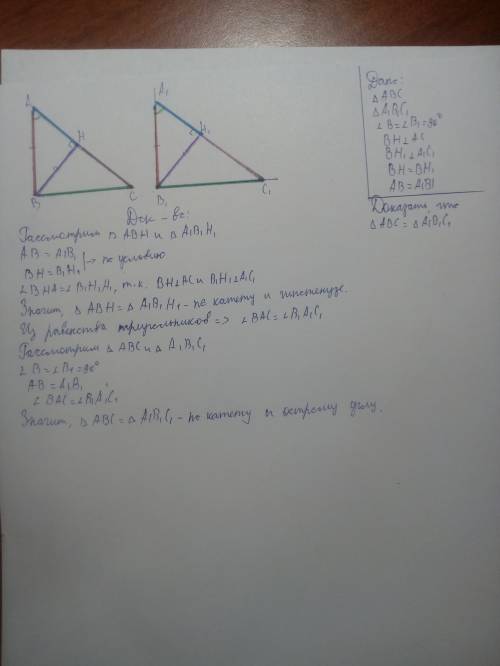 A
H
B
C
A₁
H₁
B₁
C₁
Дано:
△ABC
△A₁B₁C₁
∠B=∠B₁=90°
BH⊥AC
BH₁⊥A₁C₁
BH=BH₁
AB=A₁B₁
Доказать, что
△ABC=△A₁B₁C₁
Док-во:
Рассмотрим △ABH и △A₁B₁H₁
AB=A₁B₁
BH=B₁H₁ → по условию
∠BHA=∠B₁H₁A₁, т.к. BH⊥AC и B₁H₁⊥A₁C₁
Значит, △ABH=△A₁B₁H₁ - по катету и гипотенузе.
Из равенства треугольников => ∠BAC=∠B₁A₁C₁
Рассмотрим △ABC и △A₁B₁C₁
∠B=∠B₁=90°
AB=A₁B₁
∠BAC=∠B₁A₁C₁
Значит, △ABC=△A₁B₁C₁ - по катету и острому углу.